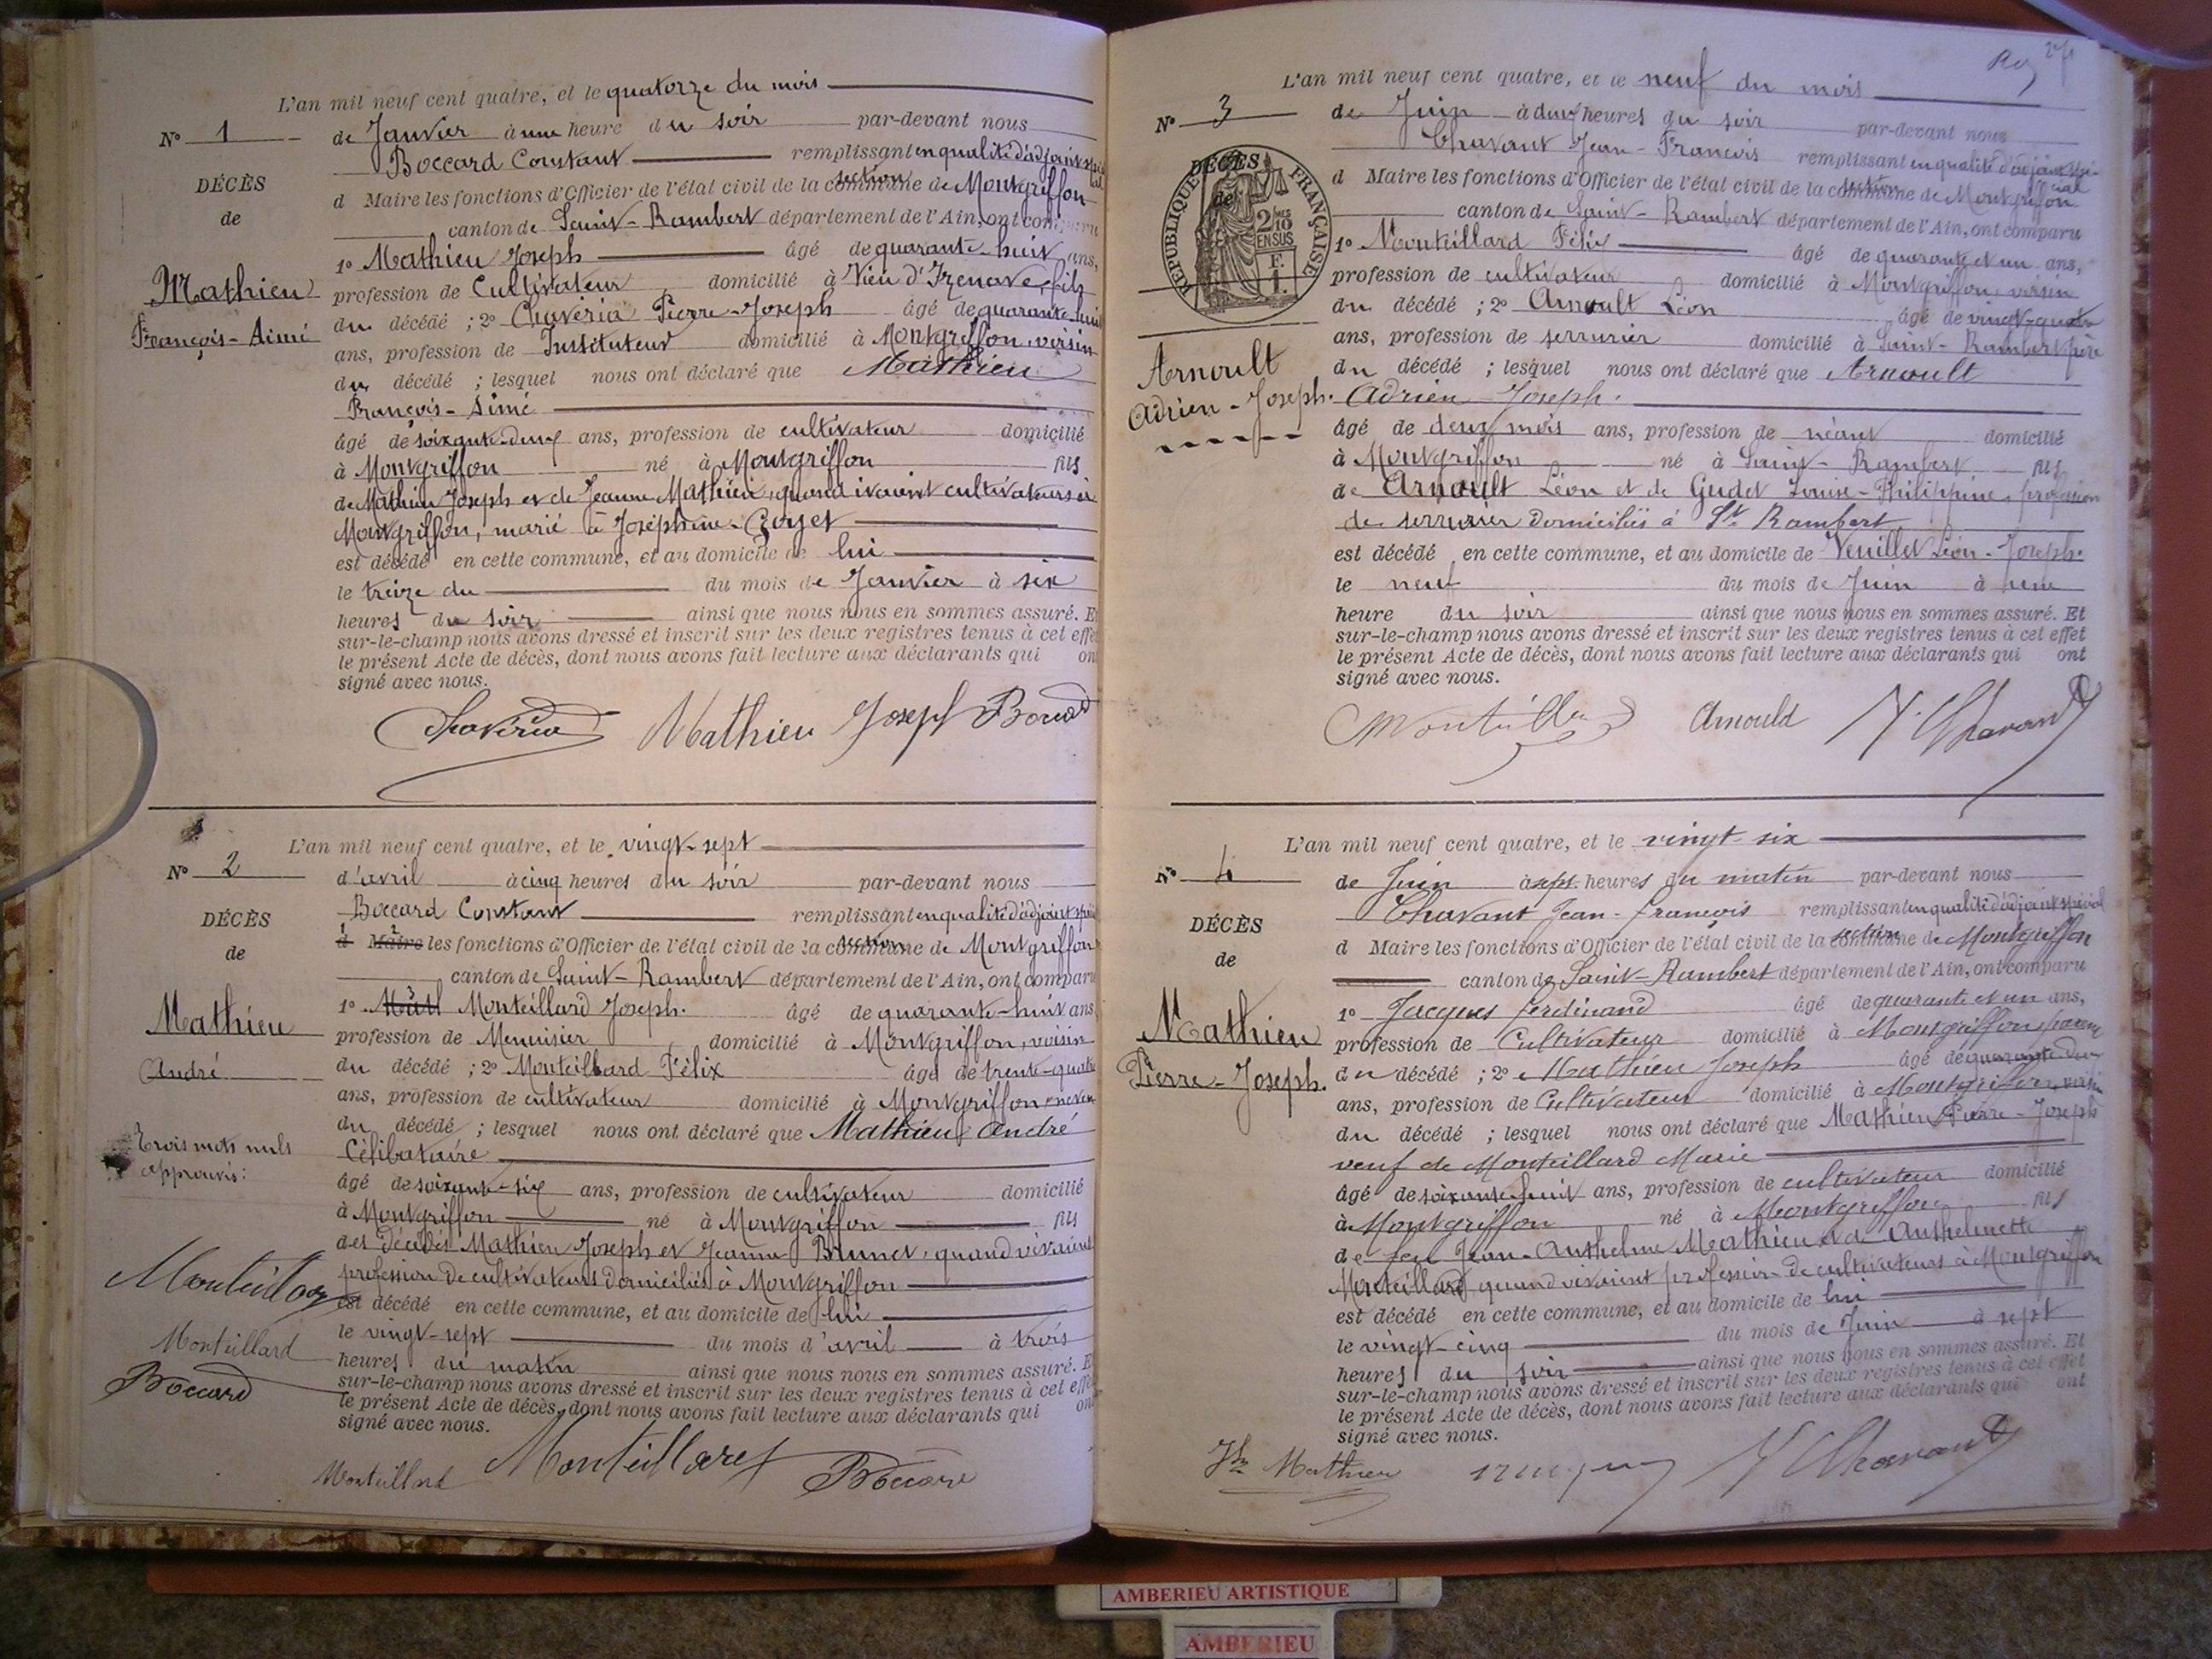 L'an mil neuf cent quatre, et le quatorze du mois
N° 1
de Janvier à une heure du soir par-devant nous
Boccard Constant remplissant en qualité d'adjoint spécial
DÉCÈS
d Maire les fonctions d'Officier de l'état civil de la commune section de Montgriffon
de
canton de Saint-Rambert département de l'Ain, ont comparu
1° Mathieu Joseph âgé de quarante-huit ans,
Mathieu
profession de Cultivateur domicilié à Vieu d'Izenave, fils
François-Aimé
du décédé ; 2° Chavéria Pierre-Joseph âgé de quarante-huit
ans, profession de Instituteur domicilié à Montgriffon, voisin
du décédé ; lesquel nous ont déclaré que Mathieu
François-Aimé
âgé de soixante-deux ans, profession de cultivateur domicilié
à Montgriffon né à Montgriffon fils
de Mathieu Joseph et de Jeanne Mathieu, quand ivaient cultivateurs à
Montgriffon, marié à Joséphine Goyet
est décédé en cette commune, et au domicile de lui
le treize du du mois de Janvier à six
heures du soir ainsi que nous nous en sommes assuré. Et
sur-le-champ nous avons dressé et inscrit sur les deux registres tenus à cet effet
le présent Acte de décès, dont nous avons fait lecture aux déclarants qui ont
signé avec nous.
Chavéria Mathieu Joseph Boccard
L'an mil neuf cent quatre, et le vingt-sept
N° 2
d'avril à cinq heures du soir par-devant nous
Boccard Constant remplissant en qualité d'adjoint spécial
DÉCÈS
d Maire les fonctions d'Officier de l'état civil de la commune section de Montgriffon
de
canton de Saint-Rambert département de l'Ain, ont comparu
1° Math Monteillard Joseph. âgé de quarante-huit ans,
Mathieu
profession de Menuisier domicilié à Montgriffon, voisin
André
du décédé ; 2° Monteillard Félix âgé de trente-quatre
ans, profession de cultivateur domicilié à Montgriffon neveu
du décédé ; lesquel nous ont déclaré que Mathieu André
Trois mots nuls
approuvés :
Célibataire
âgé de soixante-six ans, profession de cultivateur domicilié
à Montgriffon né à Montgriffon fils
des décédés Mathieu Joseph et Jeanne Brunet, quand vivaient
profession de cultivateurs domiciliés à Montgriffon
Monteillard
est décédé en cette commune, et au domicile de lui
le vingt-sept du mois d'avril à trois
Monteillard
heures du matin ainsi que nous nous en sommes assuré. Et
Boccard
sur-le-champ nous avons dressé et inscrit sur les deux registres tenus à cet effet
le présent Acte de décès, dont nous avons fait lecture aux déclarants qui ont
signé avec nous.
Monteillard Monteillard Boccard
L'an mil neuf cent quatre, et le neuf du mois
N° 3
de Juin à deux heures du soir par-devant nous
Chavant Jean-François remplissant en qualité d'adjoint spécial
DÉCÈS
de
RÉPUBLIQUE FRANÇAISE
2/10 MES EN SUS
F. 1.
d Maire les fonctions d'Officier de l'état civil de la commune section de Montgriffon
canton de Saint-Rambert département de l'Ain, ont comparu
1° Monteillard Félix âgé de quarante et un ans,
profession de cultivateur domicilié à Montgriffon, voisin
du décédé ; 2° Arnoult Léon âgé de vingt-quatre
ans, profession de serrurier domicilié à Saint-Rambert père
Arnoult
Adrien-Joseph.
du décédé ; lesquel nous ont déclaré que Arnoult
Adrien-Joseph.
âgé de deux mois ans, profession de néant domicilié
à Montgriffon né à Saint-Rambert fils
de Arnoult Léon et de Gudet Louise-Philippine, profession
de serrurier domiciliés à St Rambert
est décédé en cette commune, et au domicile de Veuillet Léon-Joseph.
le neuf du mois de Juin à une
heure du soir ainsi que nous nous en sommes assuré. Et
sur-le-champ nous avons dressé et inscrit sur les deux registres tenus à cet effet
le présent Acte de décès, dont nous avons fait lecture aux déclarants qui ont
signé avec nous.
Arnould Chavant
L'an mil neuf cent quatre, et le vingt-six
N° 4
de Juin à sept heures du matin par-devant nous
Chavant Jean-François remplissant en qualité d'adjoint spécial
DÉCÈS
d Maire les fonctions d'Officier de l'état civil de la commune section de Montgriffon
de
canton de Saint-Rambert département de l'Ain, ont comparu
1° Jacques Ferdinand âgé de quarante et un ans,
Mathieu
profession de Cultivateur domicilié à Montgriffon, parent
Pierre-Joseph.
du décédé ; 2° Mathieu Joseph âgé de quarante-deux
ans, profession de Cultivateur domicilié à Montgriffon, voisin
du décédé ; lesquel nous ont déclaré que Mathieu Pierre-Joseph
veuf de Monteillard Marie
âgé de soixante-huit ans, profession de cultivateur domicilié
à Montgriffon né à Montgriffon fils
de feu Jean-Anthelme Mathieu et d'Anthelmette
Monteillard, quand vivaient profession de cultivateurs à Montgriffon
est décédé en cette commune, et au domicile de lui
le vingt-cinq du mois de Juin à sept
heures du soir ainsi que nous nous en sommes assuré. Et
sur-le-champ nous avons dressé et inscrit sur les deux registres tenus à cet effet
le présent Acte de décès, dont nous avons fait lecture aux déclarants qui ont
signé avec nous.
Jh Mathieu Chavant
AMBERIEU ARTISTIQUE
AMBERIEU